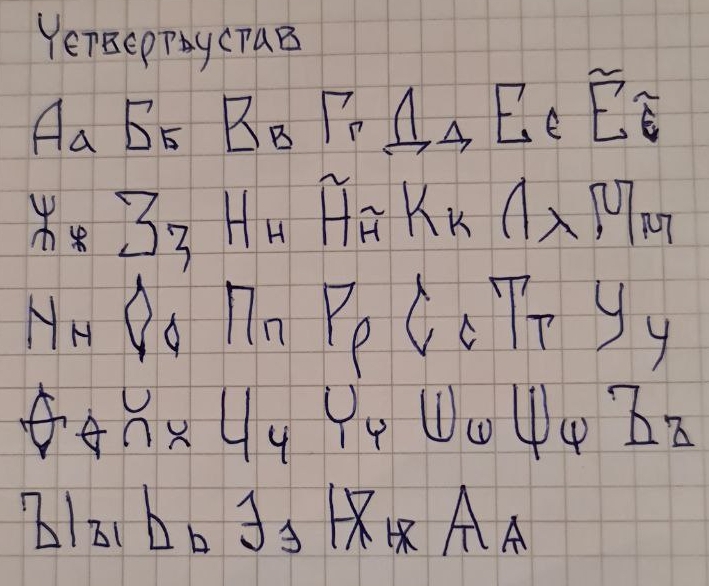 Четвертьустав
Аа Бб Вв Гг Дд Ее Ёё
Жж Зз Ии Йй Кк Лл Мм
Нн Оо Пп Рр Сс Тт Уу
Фф Хх Цц Чч Шш Щщ Ъъ
Ыы Ьь Ээ Юю Яя